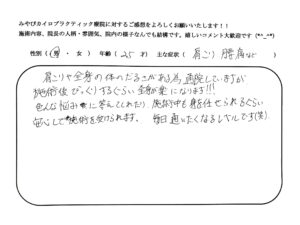 みやびカイロプラクティック療院に対するご感想をよろしくお願いいたします!!
施術内容、院長の人柄・雰囲気、院内の様子なんでも結構です。嬉しいコメント大歓迎です (*^_^*)
性別 ( 男 ・ 女 ) 年齢 ( 25 才 ) 主な症状 ( 肩こり 腰痛など )
肩こりや全身の体のだるさがある為、通院していますが
施術後びっくりするぐらい全身が楽になります!!!
色んな悩みに答えてくれたり、施術中も身を任せられるぐらい
安心して施術を受けられます。毎日通いたくなるレベルです(笑)